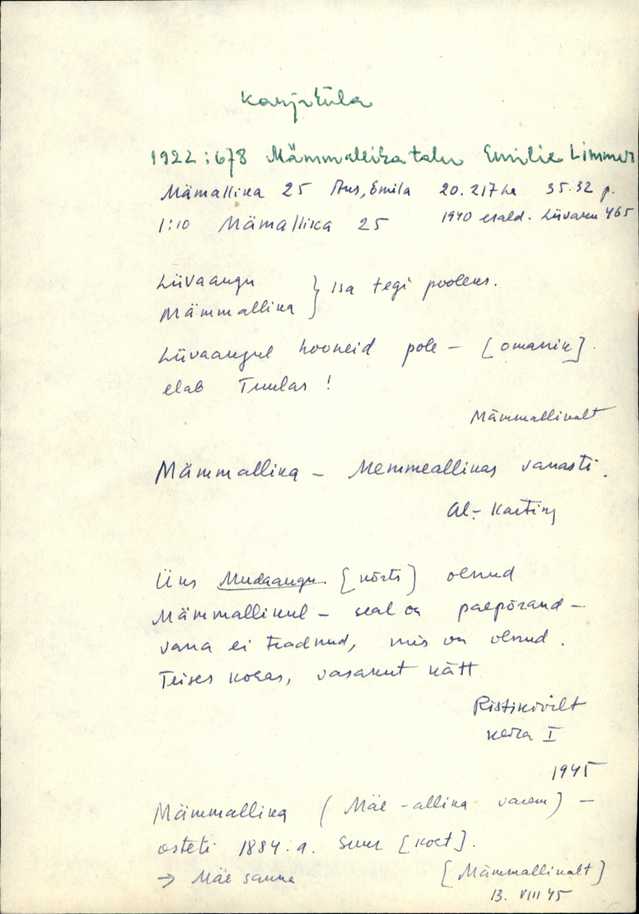 Karjaküla
1922:678 Mämmallika talu Emilie Limmer
Mämallika 25 Aus, Emila 20.217 ha 35.32 p.
1:10 Mämallika 25 1940 erald. Liivaru 465
Liivaangu } isa tegi pooleks.
Mämmallika
Liivaangul hooneid pole – [omanik]
elab Tuulas !
Mämmallikalt
Mämmallika – Memmeallikas vanasti.
Al.-
Üks Mudaaugu [kõrts] olnud
Mämmallikul – seal on paepõrand –
vana ei teadnud, mis on olnud.
Teises kohas, vasakut kätt
Ristikivilt
Keila I
1945
Mämmallika (Mäe-allika varem) –
osteti 1884.a. Suur [koht].
→ Mäe sauna [Mämmallikalt]
13. VIII 45